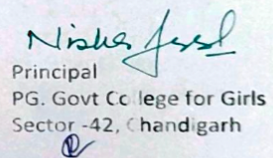 Principal
PG. Govt College for Girls
Sector -42, Chandigarh